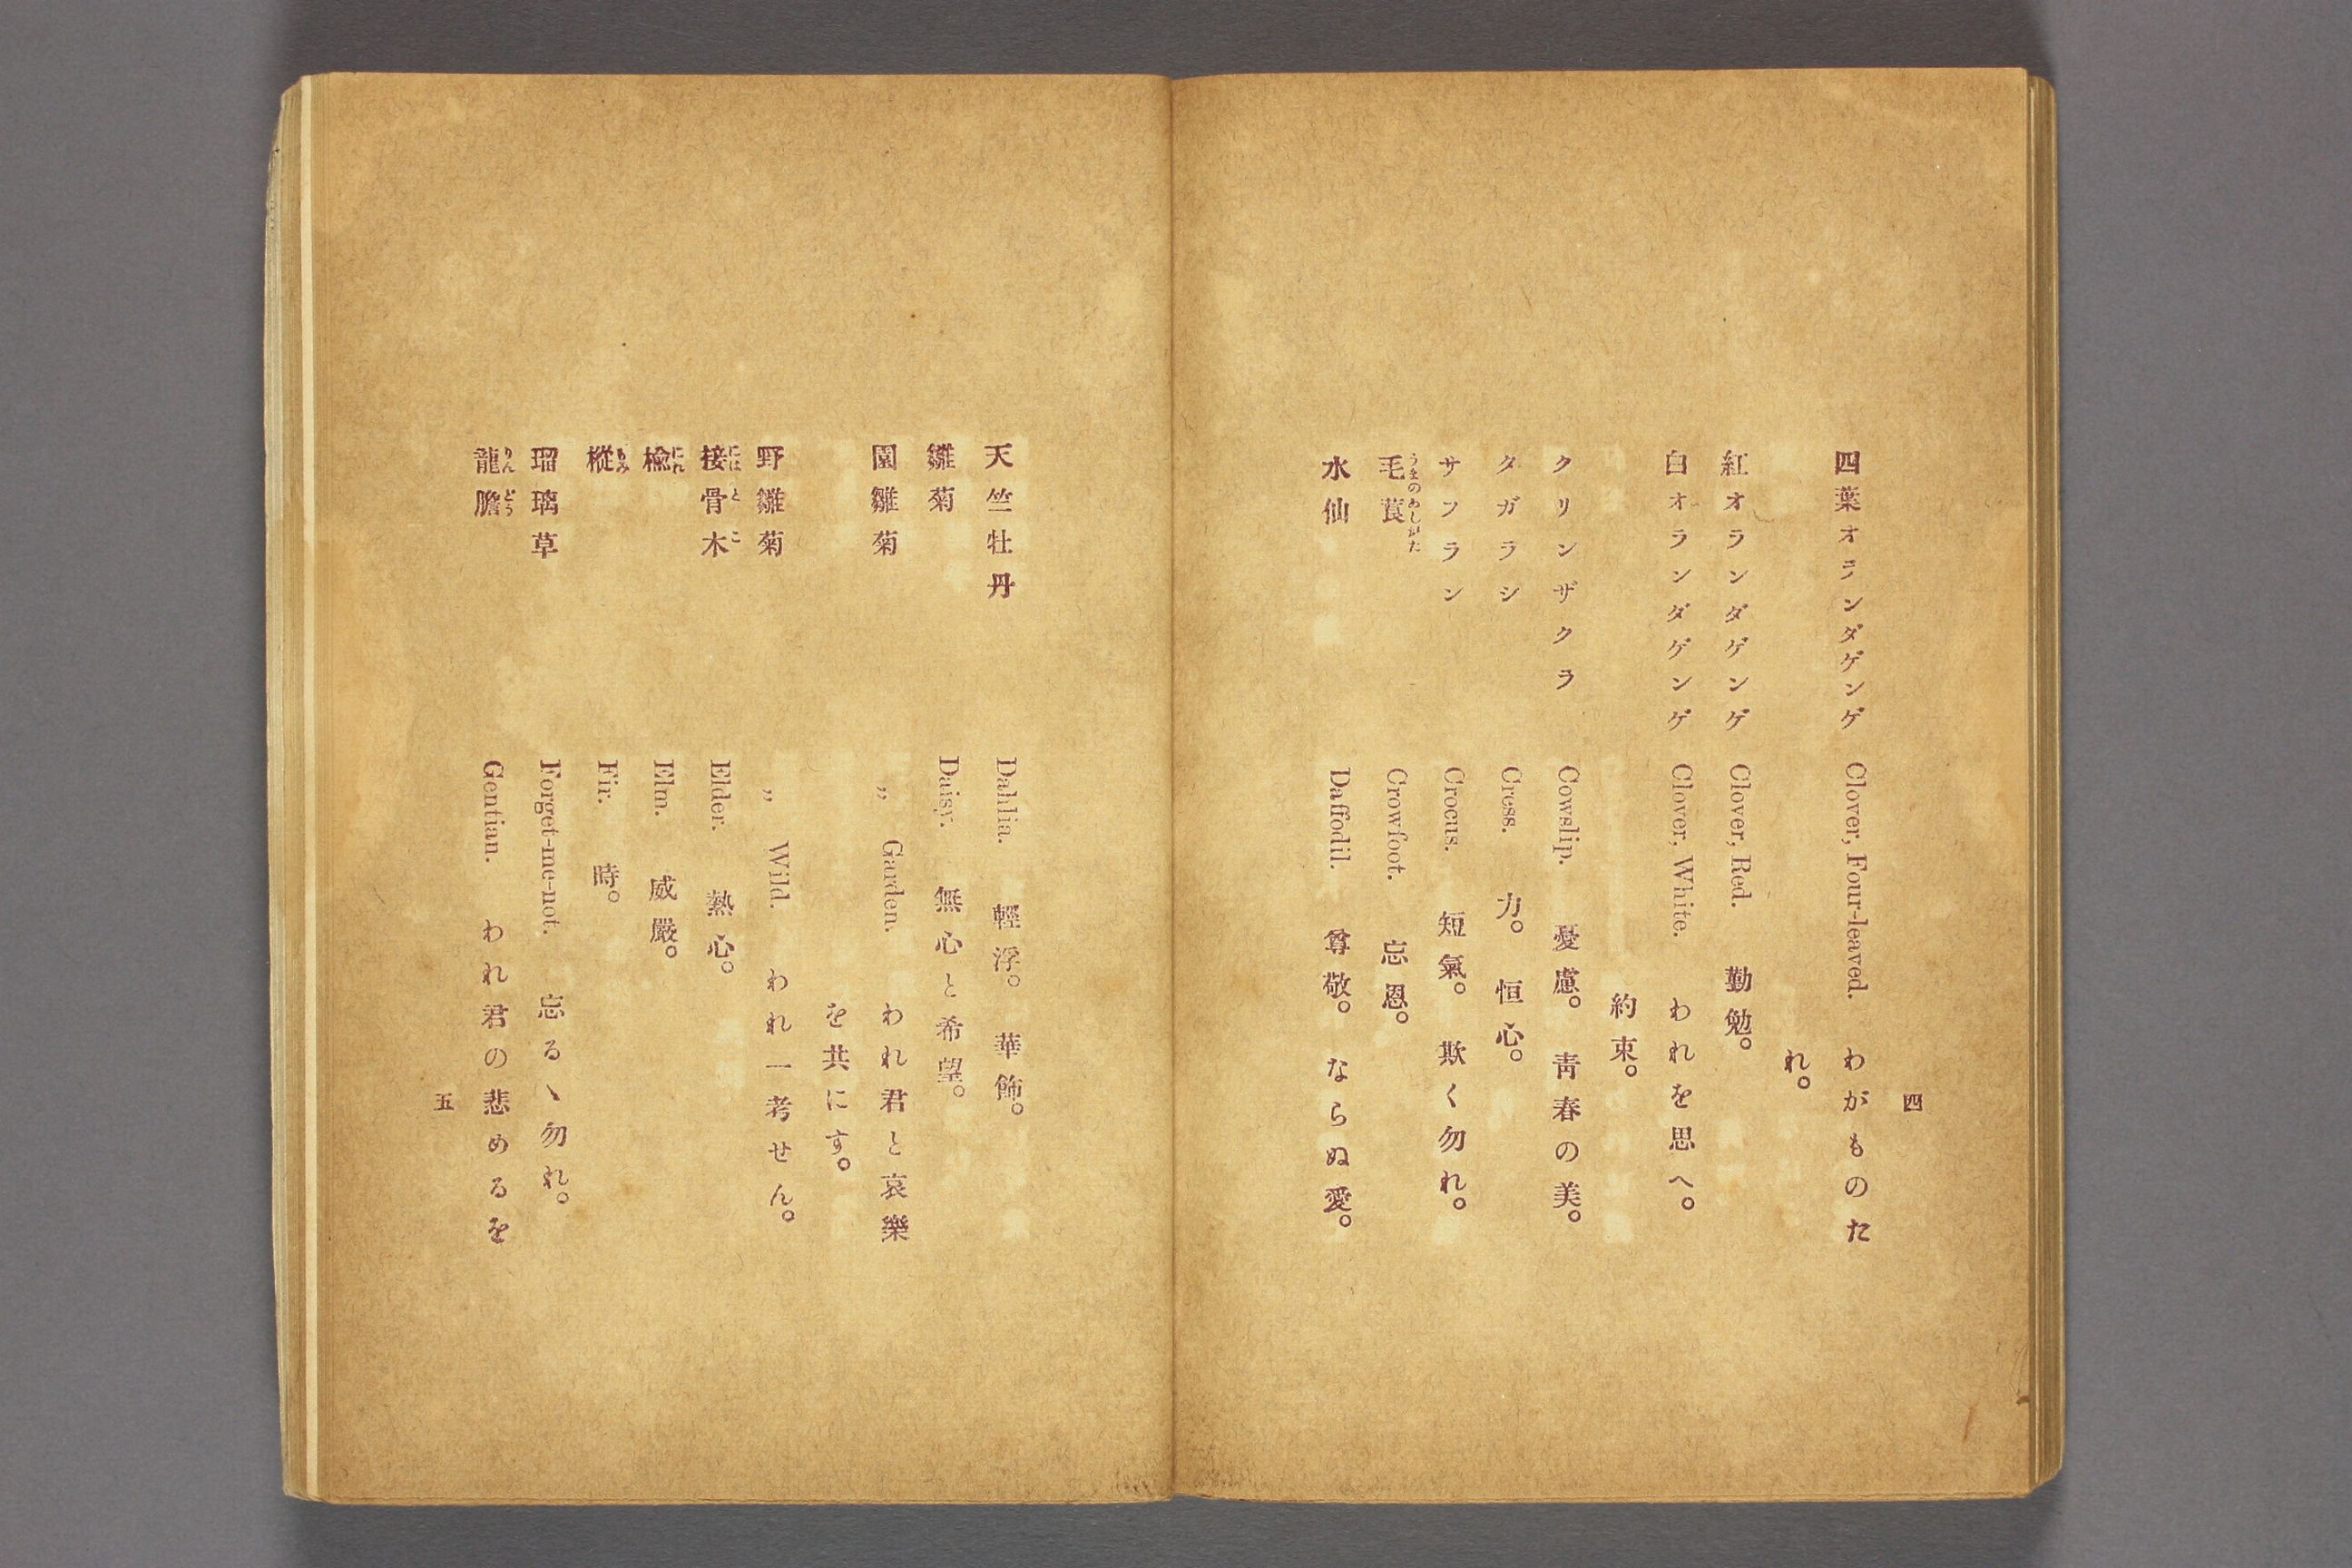 四
四葉オランダゲンゲ Clover, Four-leaved. わがものた
れ。
紅オランダゲンゲ Clover, Red. 勤勉。
白オランダゲンゲ Clover, White. われを思へ。
約束。
クリンザクラ Cowslip. 憂慮。 靑春の美。
タガラシ Cress. 力。 恒心。
サフラン Crocus. 短氣。 欺く勿れ。
毛莨 Crowfoot. 忘恩。
うまのあしがた
水仙 Daffodil. 尊敬。 ならぬ愛。
天竺牡丹 Dahlia. 輕浮。 華飾。
雛菊 Daisy. 無心と希望。
園雛菊 〃 Garden. われ君と哀樂
を共にす。
野雛菊 〃 Wild. われ一考せん。
接骨木 Elder. 熱心。
にはとこ
楡 Elm. 威嚴。
にれ
樅 Fir. 時。
もみ
瑠璃草 Forget-me-not. 忘るゝ勿れ。
龍膽 Gentian. われ君の悲めるを
りんどう
五